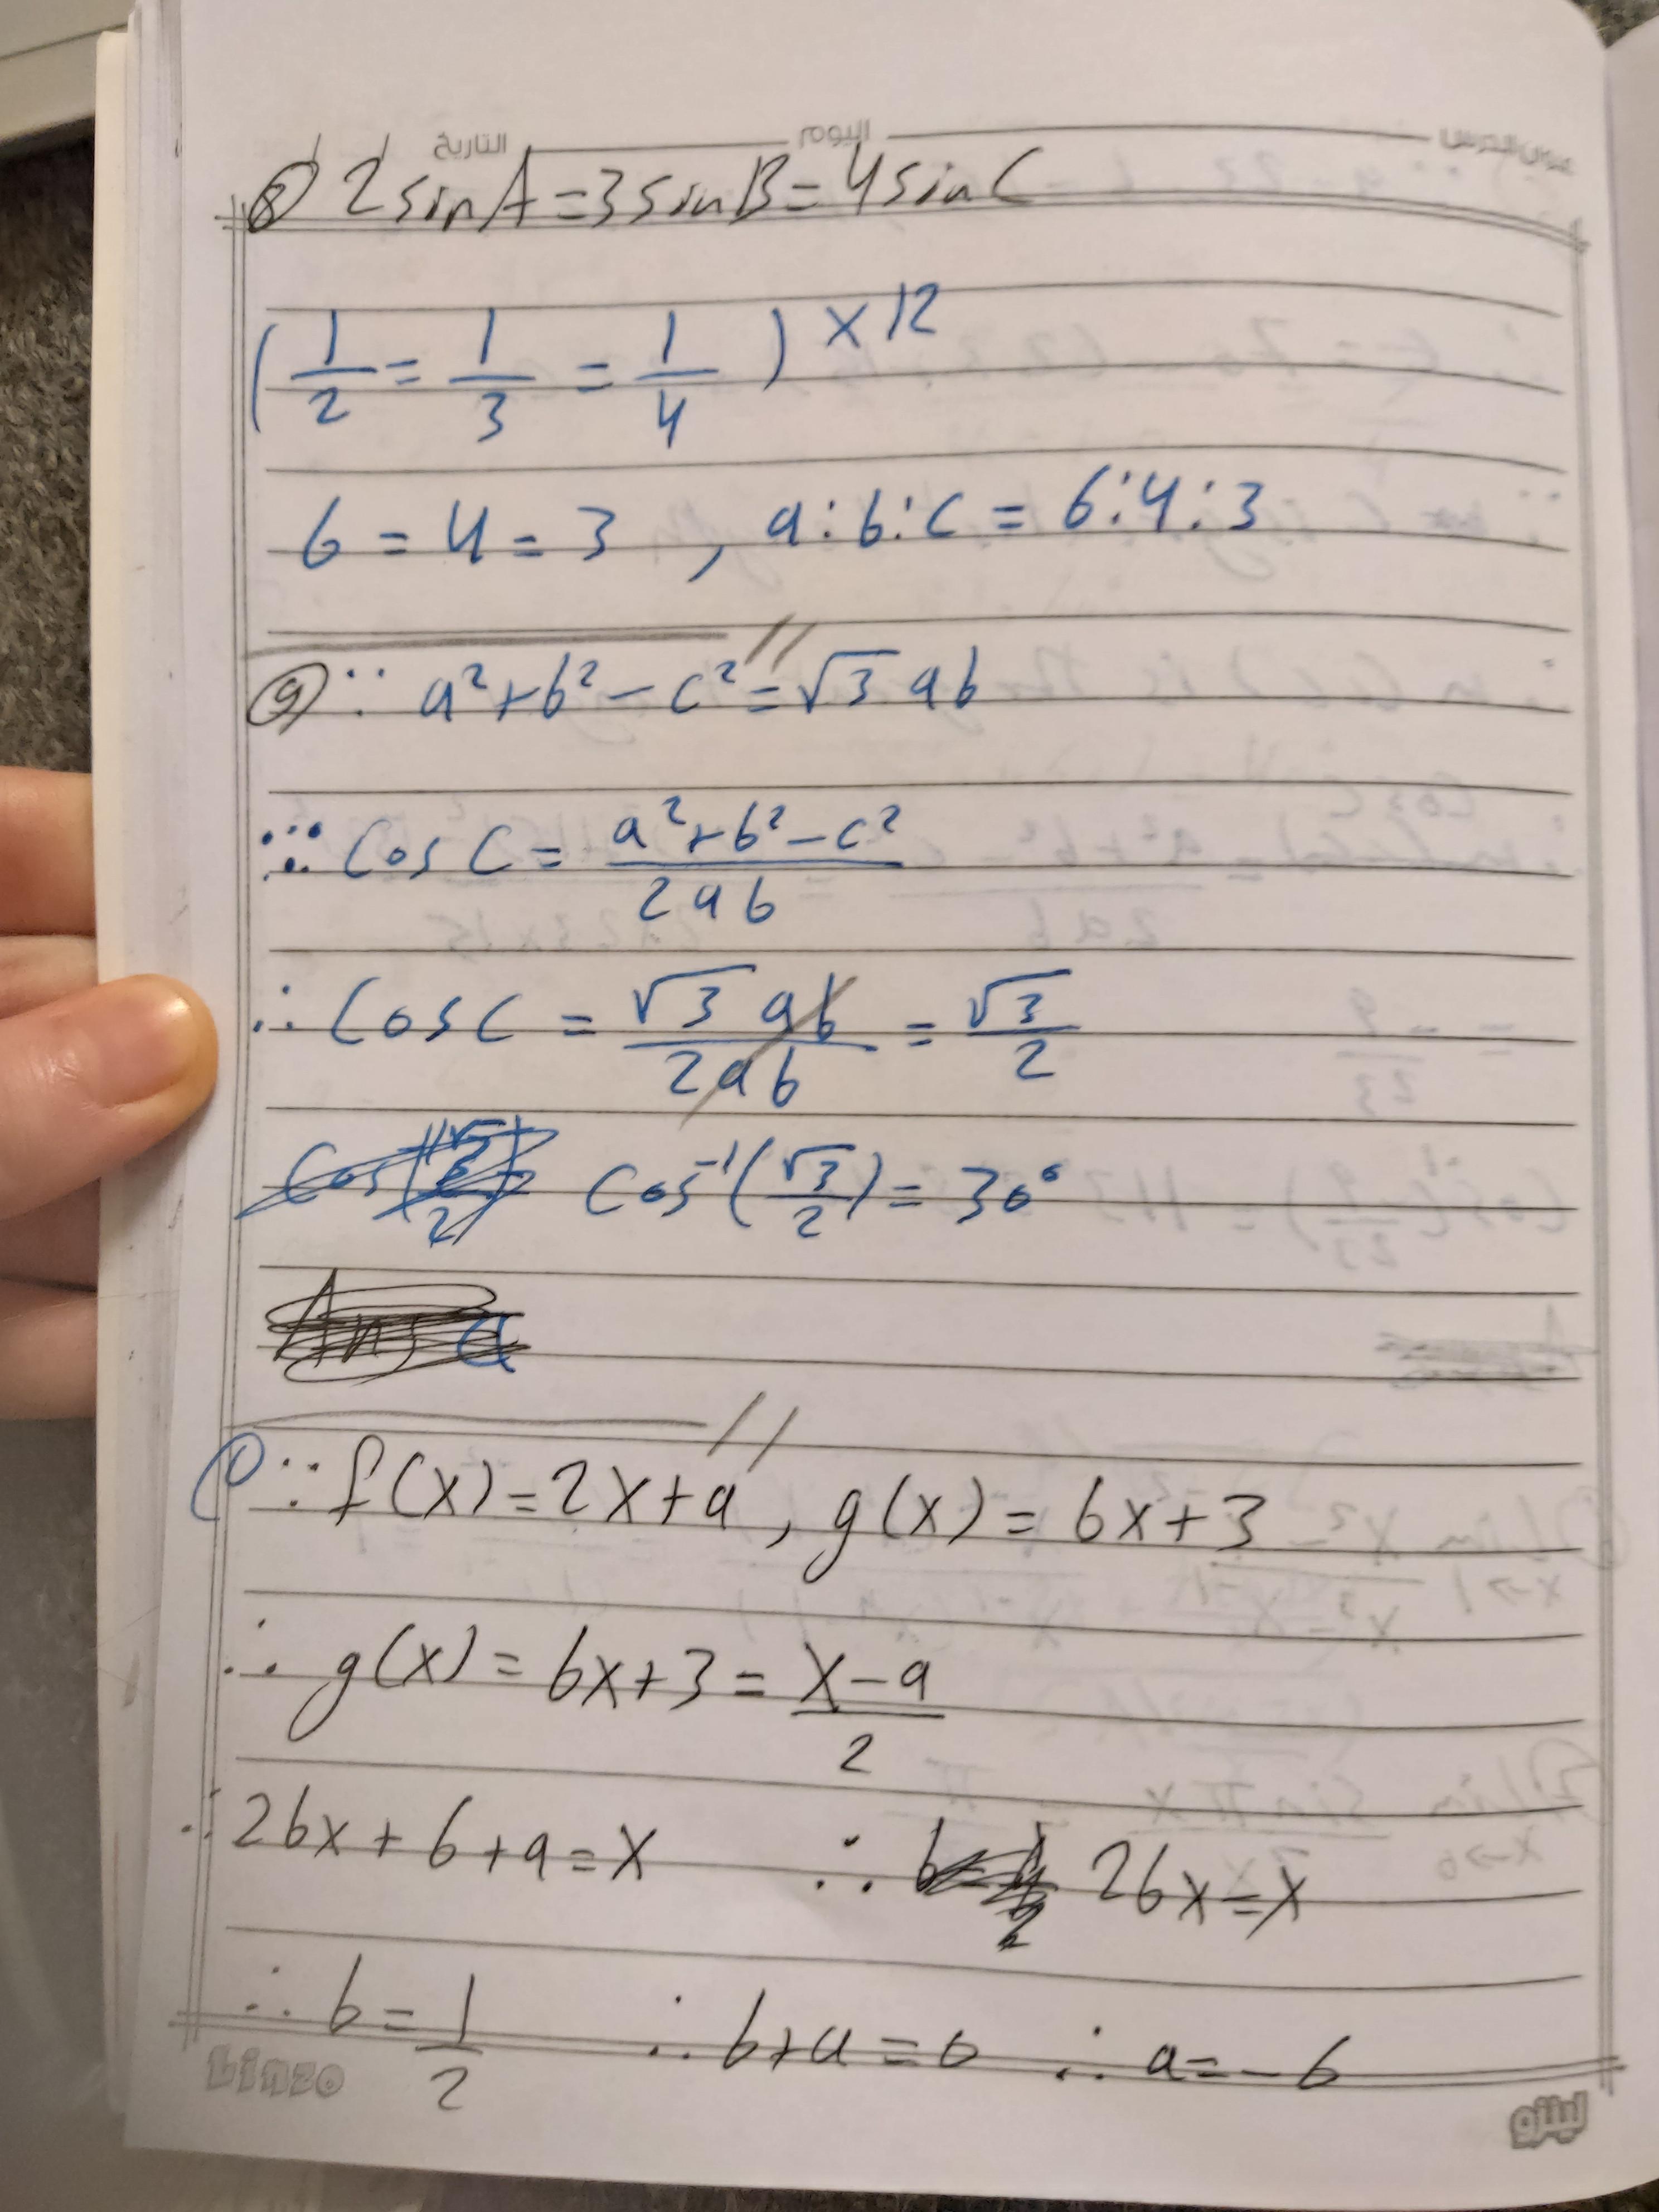 التاريخ اليوم عنوان الدرس
8 2 sin A = 3 sin B = 4 sin C
(1/2 = 1/3 = 1/4) × 12
6 = 4 = 3 , a : b : c = 6 : 4 : 3
9 ∵ a² + b² - c² = √3 ab
∵ Cos C = (a² + b² - c²)/(2ab)
∴ Cos C = (√3 ab)/(2ab) = √3/2
Cos⁻¹(√3/2) = 30°
10 ∵ f(x) = 2x + a , g(x) = bx + 3
∴ g(x) = bx + 3 = (x - a)/2
∴ 2bx + 6 + a = x ∴ 2bx = x
∴ b = 1/2 ∴ 6 + a = 0 ∴ a = -6
Linzo لينزو